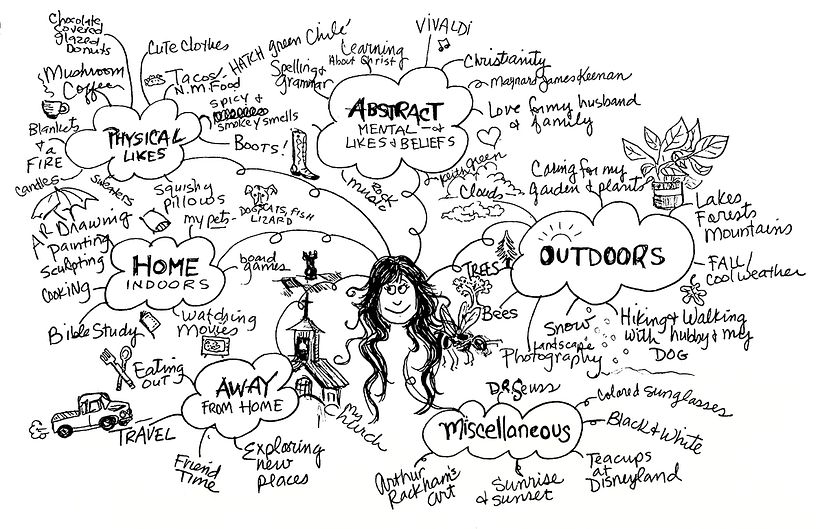 Chocolate
Covered
glazed
Donuts
Cute Clothes
Mushroom
Coffee
Tacos/
N.M. Food
Spicy &
smokey smells
Blankets
& a
FIRE
Candles
Sweaters
PHYSICAL
LIKES
BOOTS!
HATCH green Chile'
Spelling &
grammar
Learning
About Christ
VIVALDI
Christianity
Maynard James Keenan
Love for my husband
& family
ABSTRACT
MENTAL
LIKES & BELIEFS
Rock
music
green
Clouds
Caring for my
garden & plants
Lakes
Forests
Mountains
OUTDOORS
FALL/
Cool weather
TREES
Bees
Snow
Landscape
Photography
Hiking & Walking
with hubby & my
DOG
Squishy
Pillows
my pets-
DOGS, CATS, FISH
LIZARD
Drawing
Painting
Sculpting
Cooking
Bible Study
HOME
INDOORS
board
games
Watching
Movies
Eating
out
AWAY
FROM HOME
TRAVEL
Friend
Time
Exploring
new
places
My
Church
Dr. Seuss
Miscellaneous
Colored Sunglasses
Black & White
Teacups
at
Disneyland
Sunrise
& sunset
Arthur
Rackham's
art